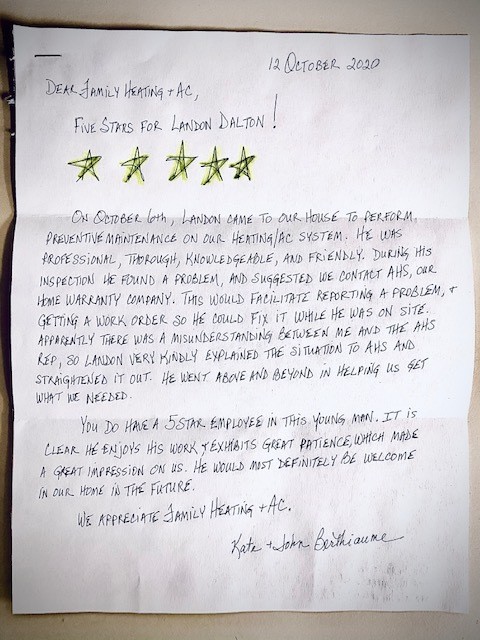 12 October 2020
Dear Family Heating + AC,
Five Stars for Landon Dalton!
On October 6th, Landon came to our house to perform
preventive maintenance on our heating/AC system. He was
professional, thorough, knowledgeable, and friendly. During his
inspection he found a problem, and suggested we contact AHS, our
home warranty company. This would facilitate reporting a problem, +
getting a work order so he could fix it while he was on site.
Apparently there was a misunderstanding between me and the AHS
rep, so Landon very kindly explained the situation to AHS and
straightened it out. He went above and beyond in helping us get
what we needed.
You do have a 5 star employee in this young man. It is
clear he enjoys his work & exhibits great patience, which made
a great impression on us. He would most definitely be welcome
in our home in the future.
We appreciate Family Heating + AC.
Kate + John Berthiaume